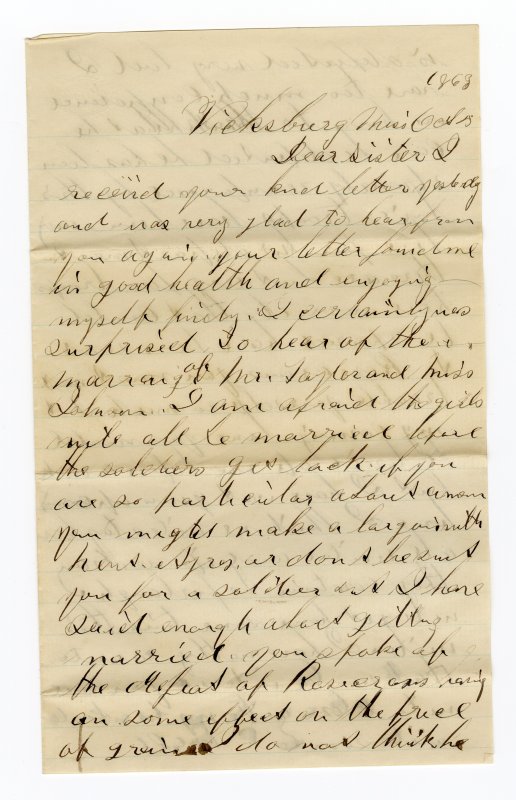 1863
Vicksburg Miss Oct 5
Dear Sister I
receiid your kind letter yesterdy
and was very glad to hear from
you again. your letter found me
in good health and enjoying
myself finely. I certainly was
surprised to hear of the
marraig of Mr. Taylor and Miss
Johnson. I am afraid the girls
will all be married before
the soldiers get back. if you
are so particular about a man
you might make a bargain with
Ayres, or dont he suit
you for a soldier but I have
said enough about getting
married. you spoke of
the defeat of Rosecrans having
an some effect on the price
of grain do not think he